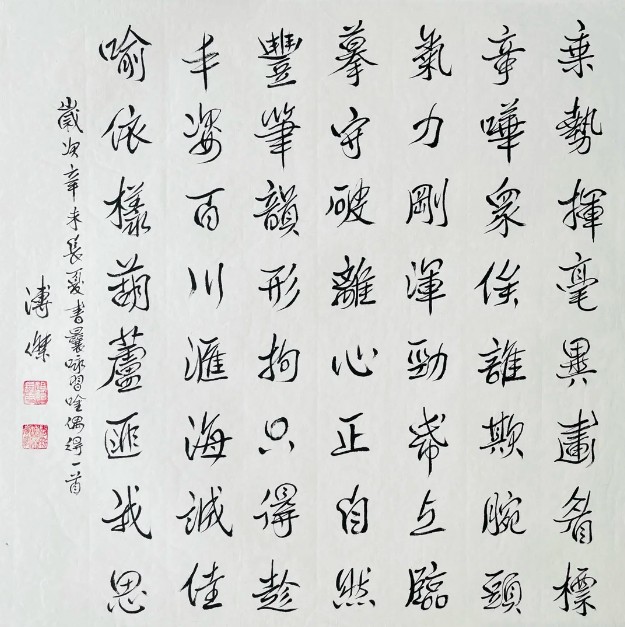 乘勢揮毫異畫眉標
奇嘩眾俟誰欺腕頭
氣力剛渾勁帋上臨
摹守破離心正自然
豐筆韻形拘只得趁
丰姿百川滙海誠佳
喻依樣葫蘆匪我思
歲次辛未長夏書曩咏習唫偶得一首
溥傑